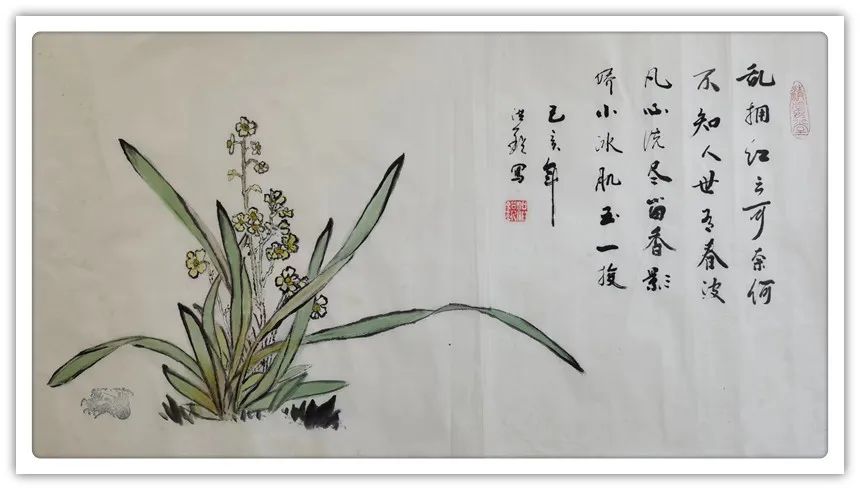 乱拥红云可奈何
不知人世有春波
凡心洗尽留香影
娇小冰肌玉一梭
己亥年
洪 写